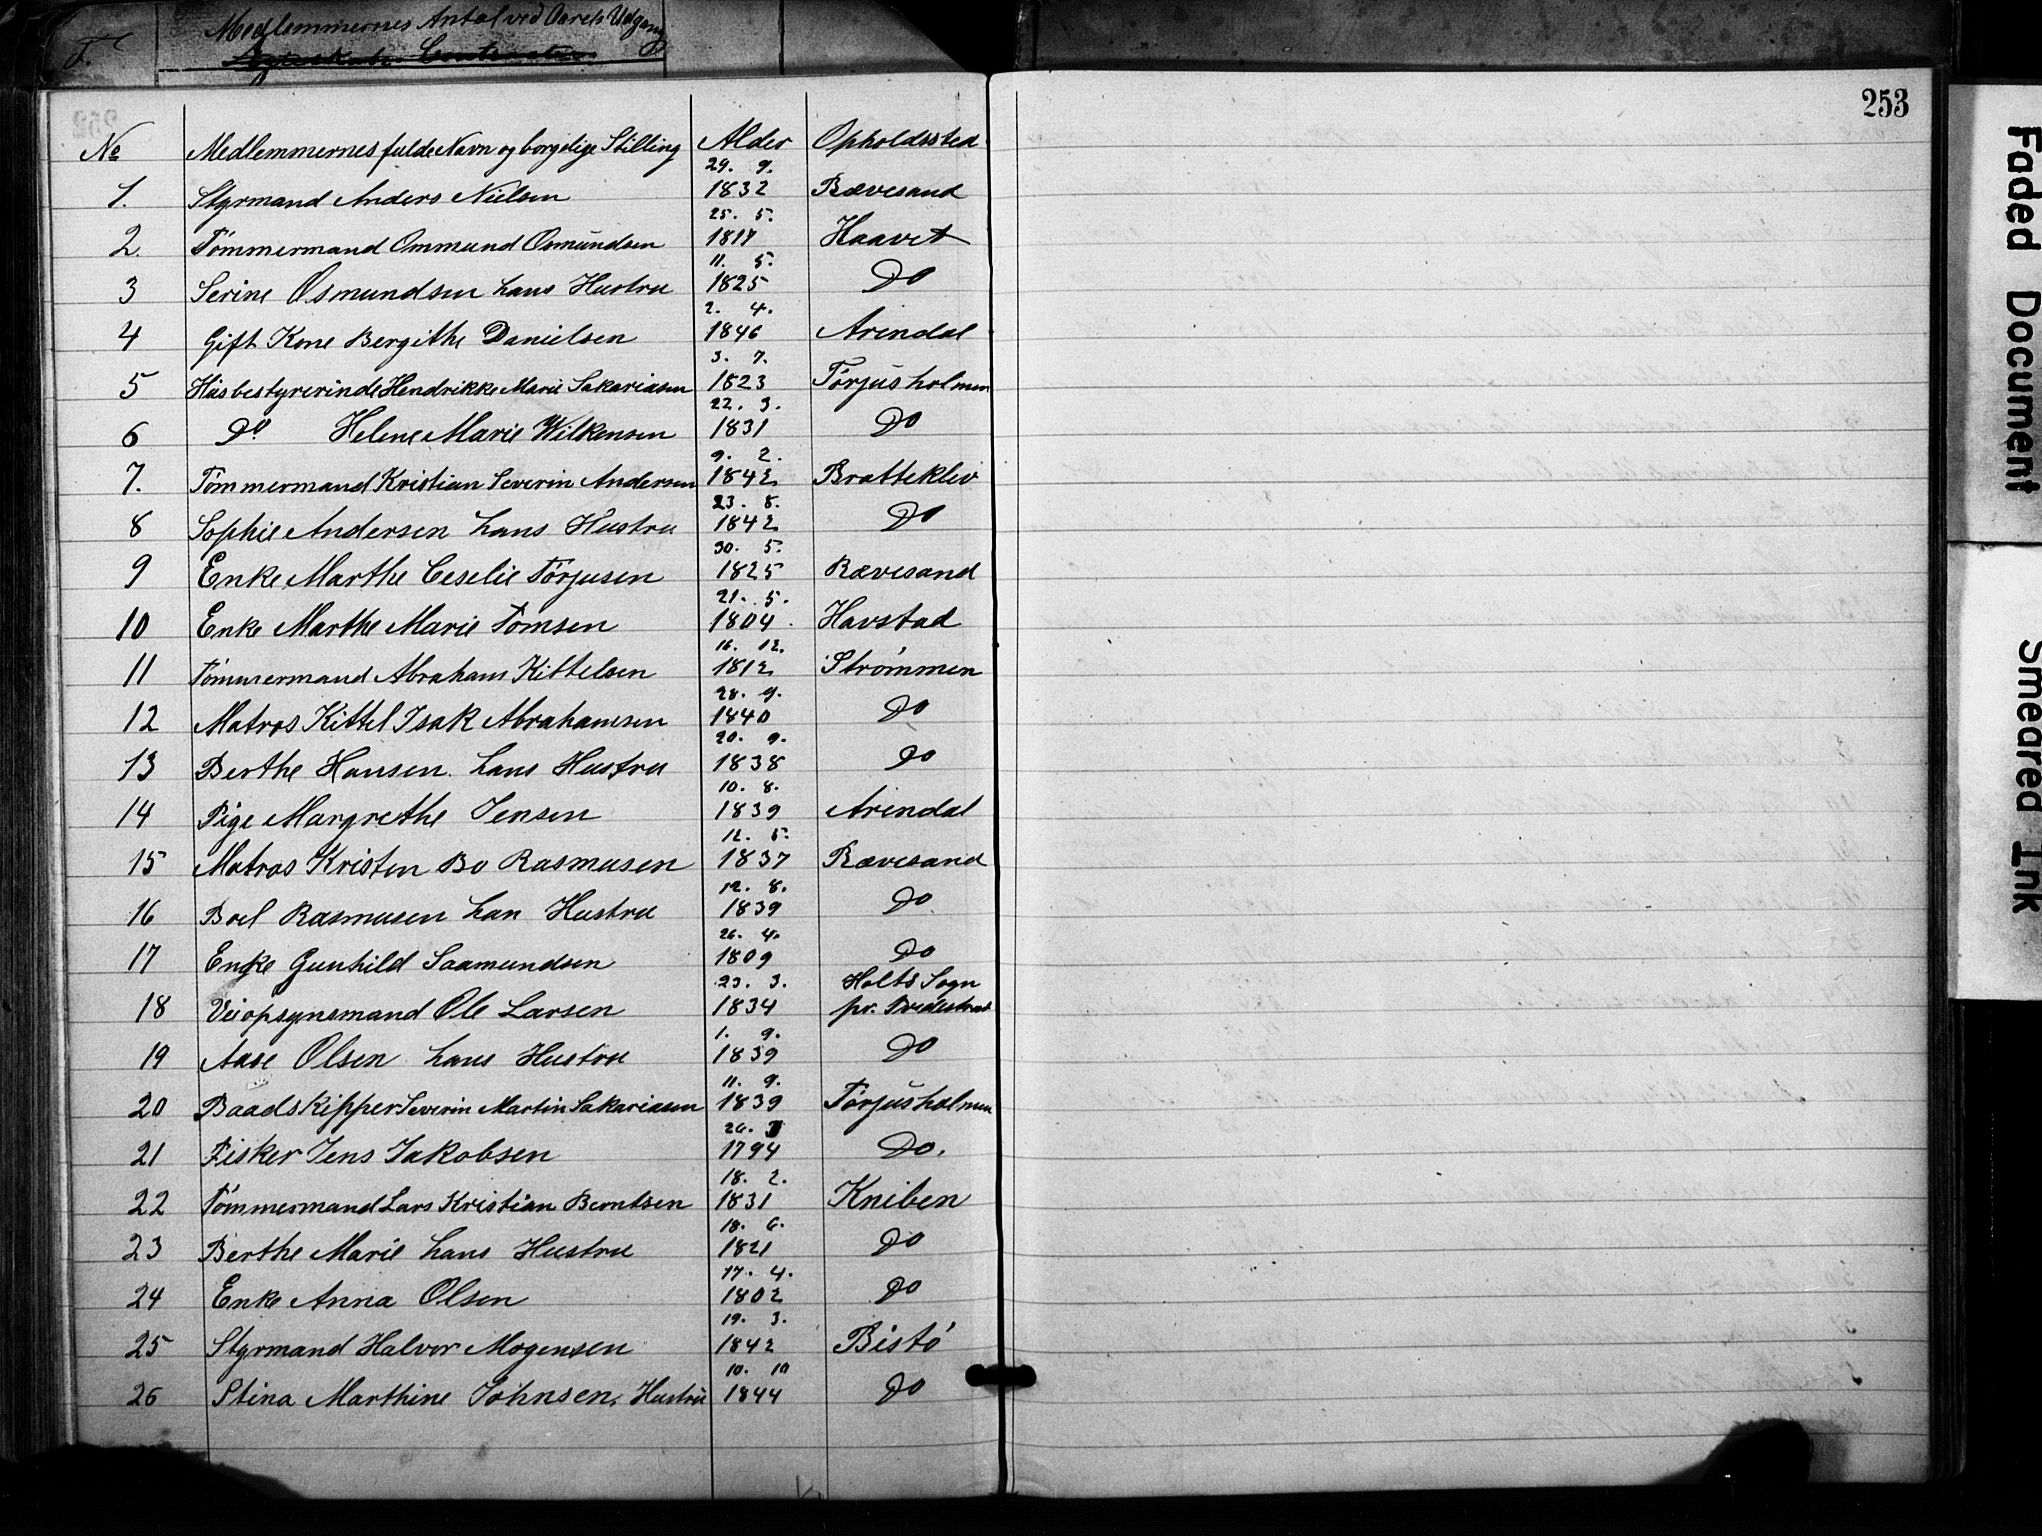 F. Medlemmernes Antal ved Aarets Udgang
253
No Medlemmernes fulde Navn og borgelige Stilling Alder Opholdssted
29. 9.
1. Styrmand Anders Nielsen 1832 Rævesand
25. 5.
2. Tömmermand Ommund Osmundsen 1817 Haavet
11. 5.
3 Serine Osmundsen hans Hustru 1825 Do
2. 4.
4 Gift Kone Bergithe Danielsen 1846 Arindal
3. 7.
5 Husbestyrerinde Hendrikke Marie Sakariasen 1823 Törjusholmen
22. 3.
6 Do Helene Marie Wilkensen 1831 Do
9. 2.
7. Tömmermand Kristian Severin Andersen 1842 Bratteklev
23. 8.
8 Sophie Andersen hans Hustru 1842 Do
30. 5.
9 Enke Marthe Ceselie Törjusen 1825 Rævesand
21. 5.
10 Enke Marthe Marie Tomsen 1804 Havstad
16. 12.
11 Tömmermand Abraham Kittelsen 1812 Strömmen
28. 9.
12 Matros Kittel Isak Abrahamsen 1840 Do
20. 9.
13 Berthe Hansen hans Hustru 1838 Do
10. 8.
14 Pige Margrethe Jensen 1839 Arindal
12. 5.
15 Matros Kristen Bo Rasmusen 1837 Rævesand
12. 8.
16 Boel Rasmusen han Hustru 1839 Do
26. 4.
17 Enke Gunhild Saamundsen 1809 Do
23. 3. Holts Sogn
18 Veiopsynsmand Ole Larsen 1834 pr. Tvedestrand
1. 9.
19 Aase Olsen hans Hustru 1839 Do
11. 9.
20 Baadskipper Severin Martin Sakariasen 1839 Törjusholmen
26.
21 Fisker Jens Jakobsen 1794 Do.
18. 2.
22 Tömmermand Lars Kristian Berntsen 1831 Kniben
18. 6.
23 Berthe Marie hans Hustru 1821 Do
17. 4.
24 Enke Anna Olsen 1802 Do
19. 3.
25 Styrmand Halvor Mogensen 1842 Bistö
10. 10
26 Stina Marthine Johnsen, Hustru 1844 Do
Faded Document
Smeared Ink